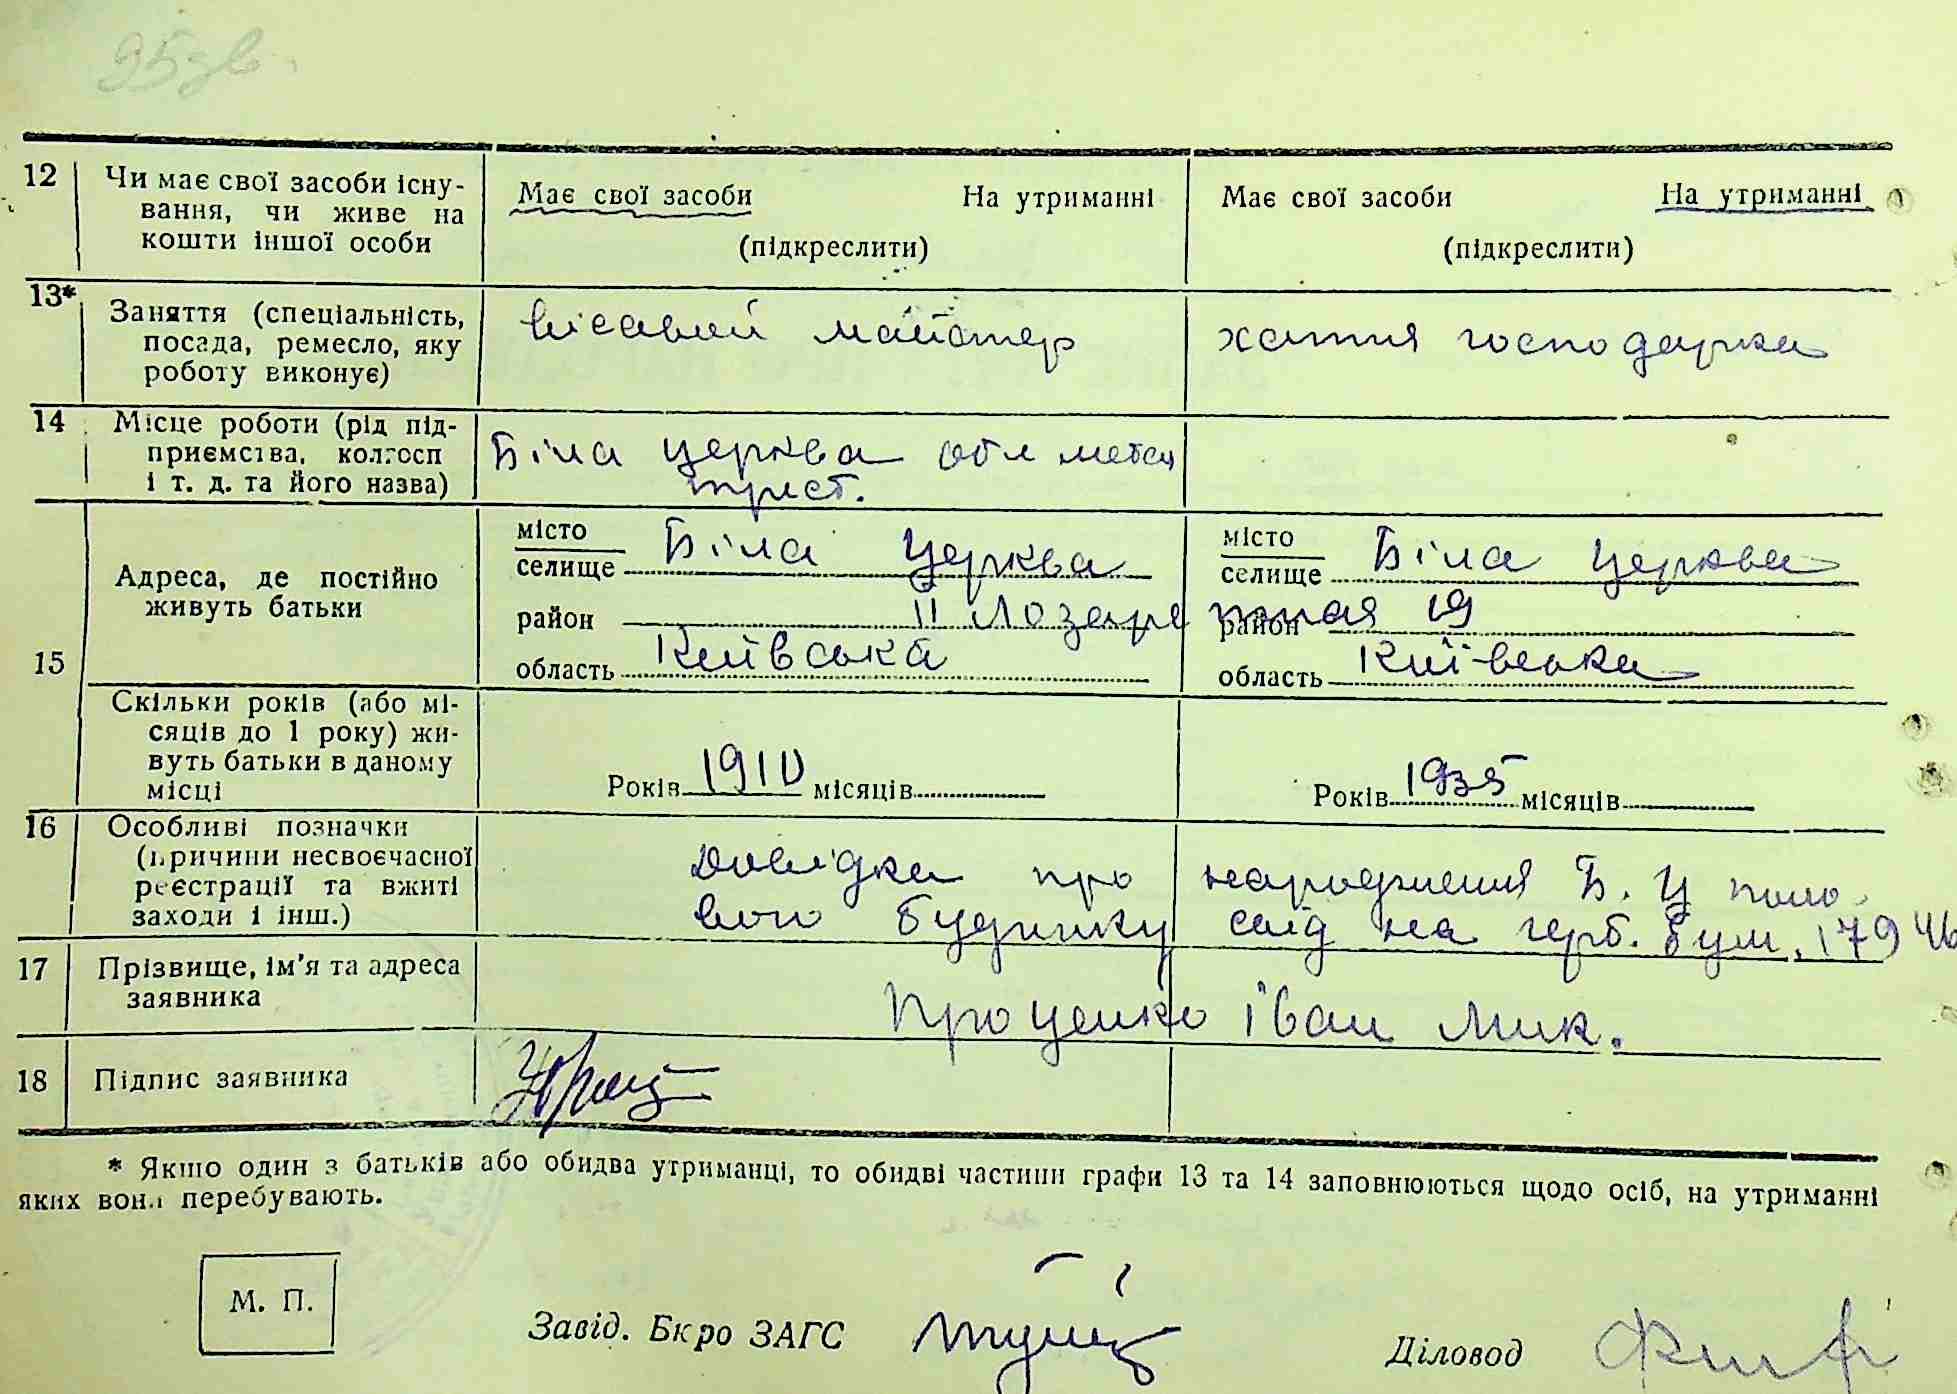 95зв.
12 Чи має свої засоби існу-
вання, чи живе на
кошти іншої особи
Має свої засоби На утриманні
(підкреслити)
Має свої засоби На утриманні
(підкреслити)
13* Заняття (спеціальність,
посада, ремесло, яку
роботу виконує)
вісавий майстер
хатня господарка
14 Місце роботи (рід під-
приємства, колгосп
і т. д. та його назва)
Біла церква обл
трест.
15 Адреса, де постійно
живуть батьки
місто
селище Біла Церква
район II
область Київська
місто
селище Біла Церква
район 19
область Київська
Скільки років (або мі-
сяців до 1 року) жи-
вуть батьки в даному
місці
Років 1910 місяців
Років 1935 місяців
16 Особливі позначки
(причини несвоєчасної
реєстрації та вжиті
заходи і інш.)
довідка про народження Б. Ц поло-
вого будинку слід на герб. бум. 179
17 Прізвище, ім'я та адреса
заявника
Проценко Іван Мик.
18 Підпис заявника
* Якщо один з батьків або обидва утриманці, то обидві частини графи 13 та 14 заповнюються щодо осіб, на утриманні
яких вони перебувають.
М. П.
Завід. Бюро ЗАГС
Діловод